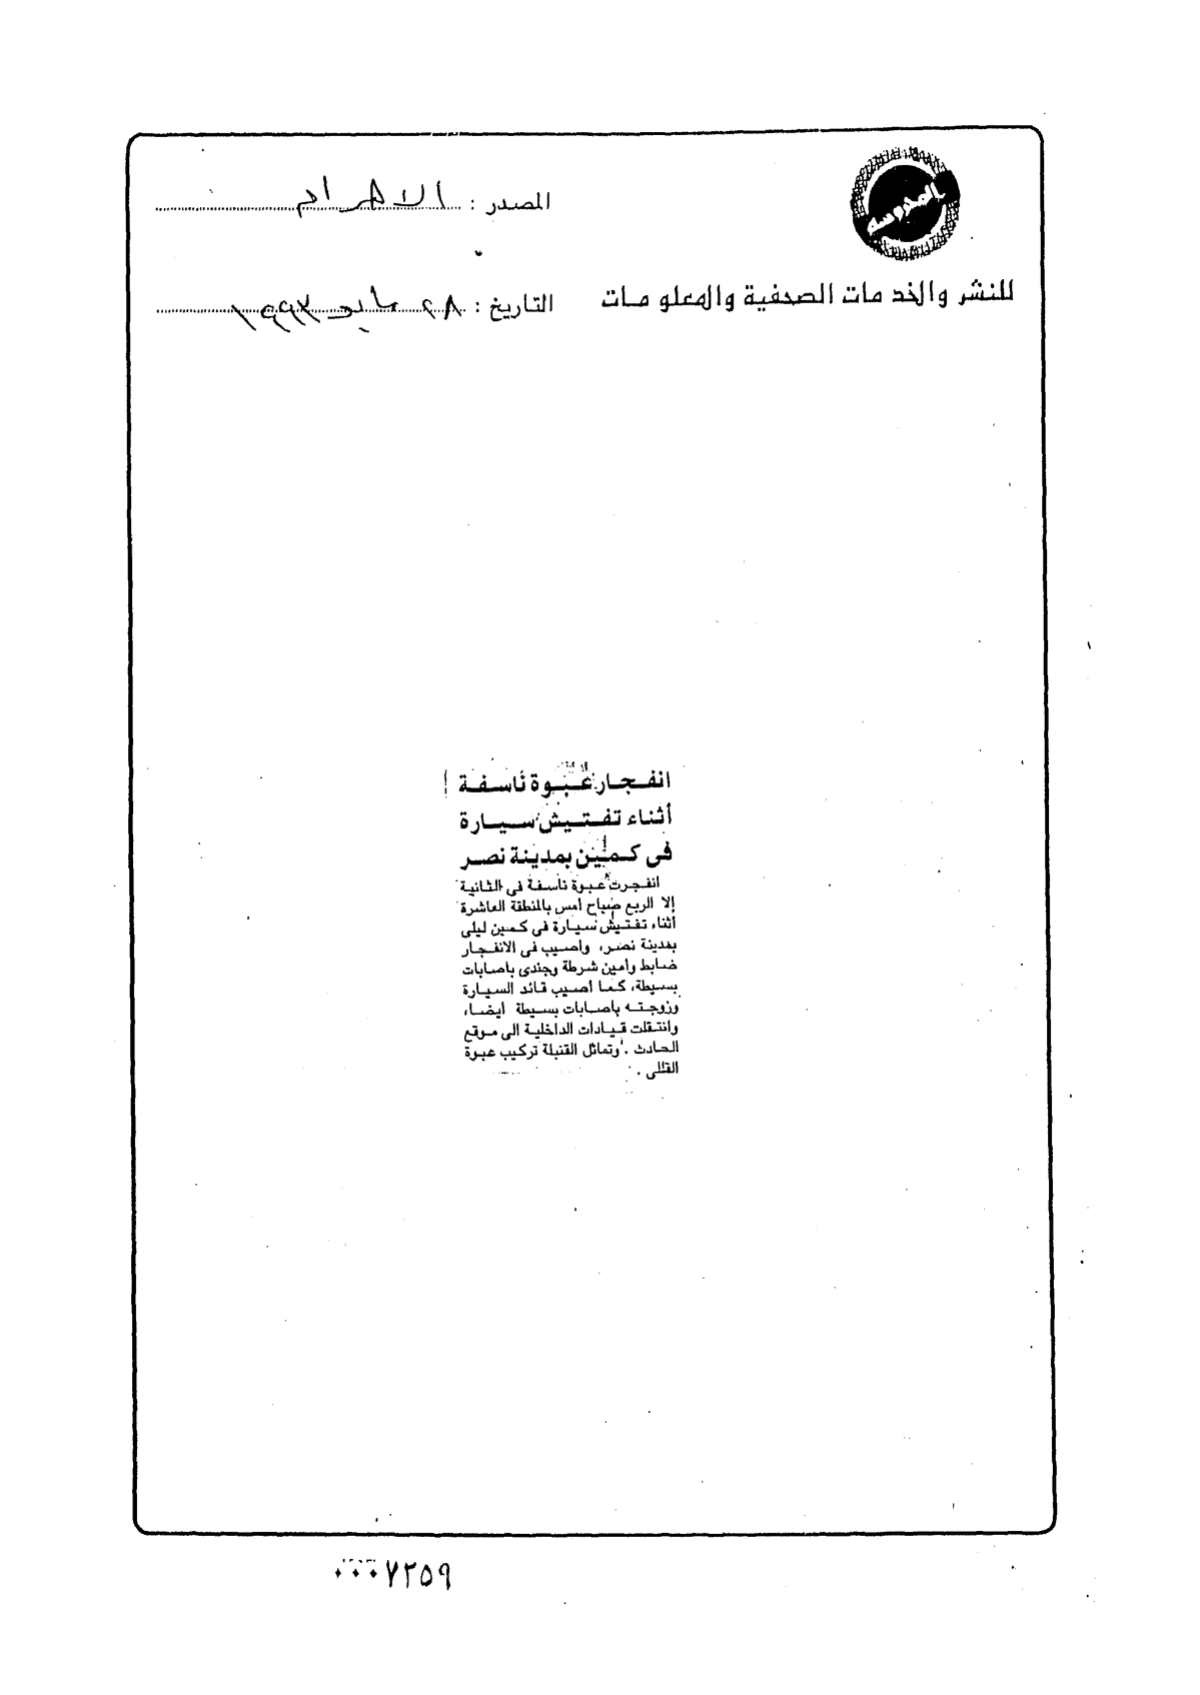 المحروسة
المصدر : الاهرام
للنشر والخدمات الصحفية والمعلومات
التاريخ : ٢٨ مايو ١٩٩٣
انفجار عبوة ناسفة
أثناء تفتيش سيارة
فى كمين بمدينة نصر
انفجرت عبوة ناسفة فى الثانية
إلا الربع صباح أمس بالمنطقة العاشرة
أثناء تفتيش سيارة فى كمين ليلى
بمدينة نصر، وأصيب فى الانفجار
ضابط وأمين شرطة وجندى باصابات
بسيطة، كما أصيب قائد السيارة
وزوجته باصابات بسيطة أيضا،
وانتقلت قيادات الداخلية الى موقع
الحادث . وتماثل القنبلة تركيب عبوة
القللى .
٠٠٠٧٢٥٩